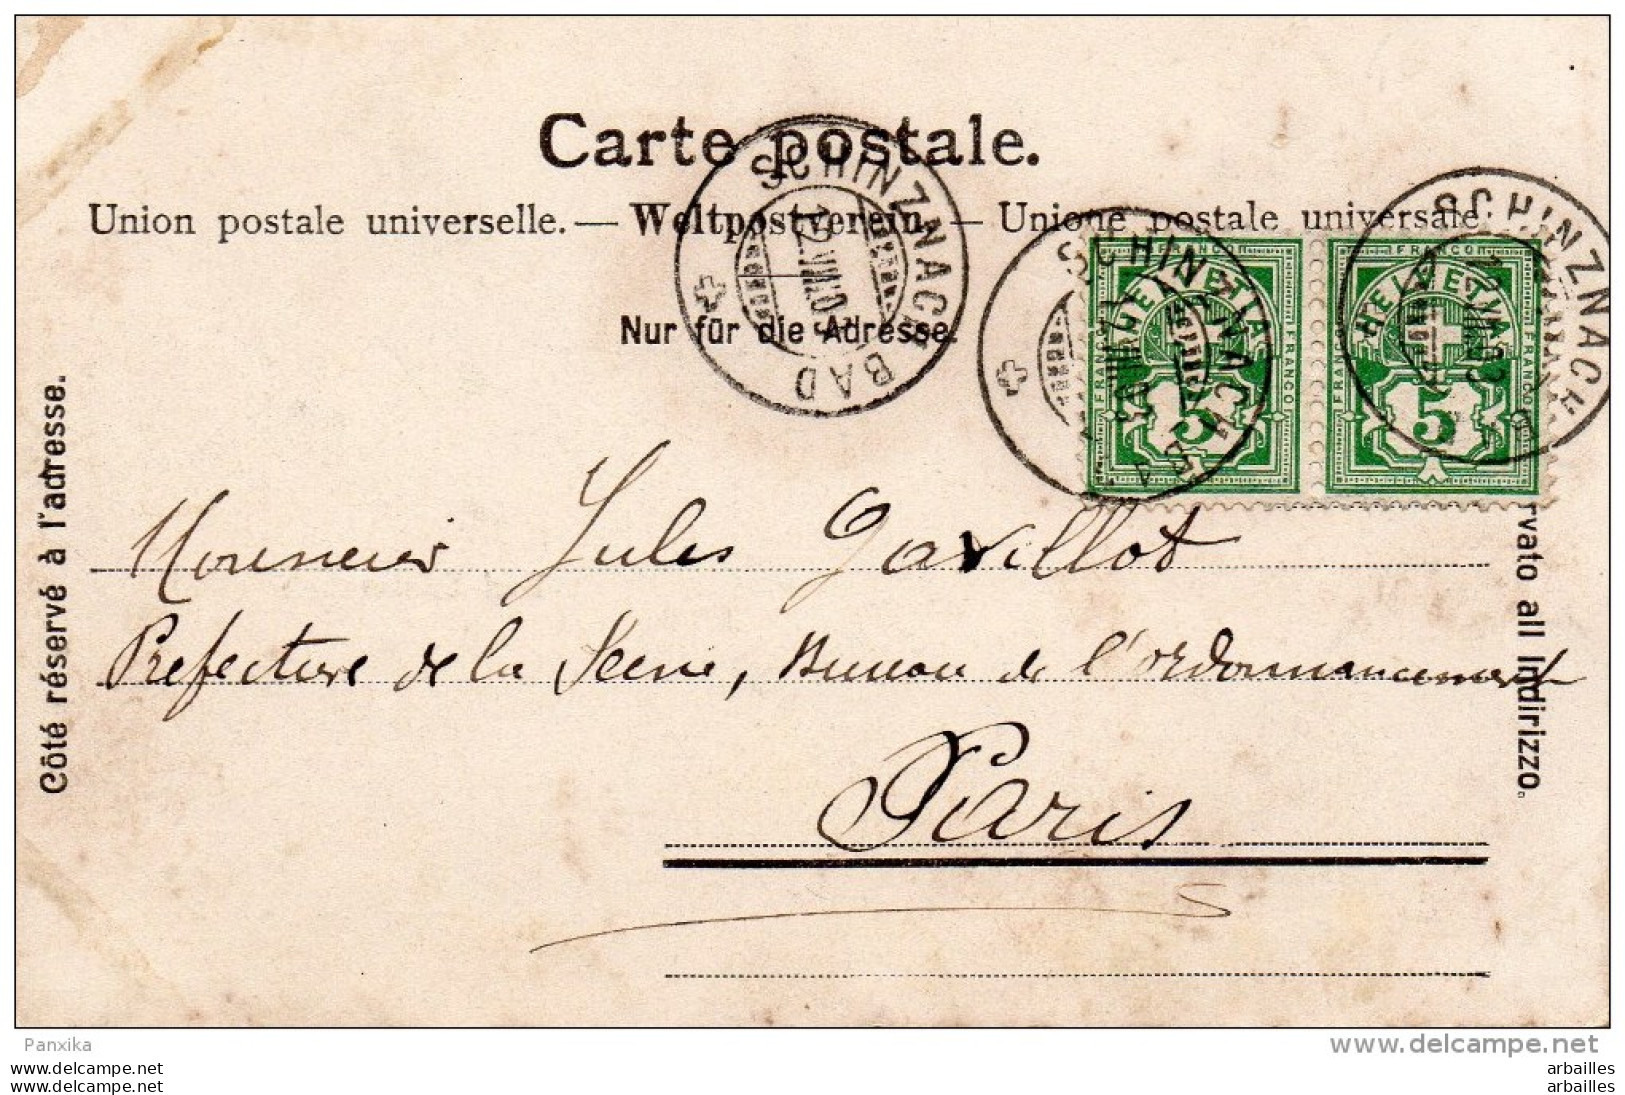 Carte postale.
Union postale universelle. — Weltpostverein. — Unione postale universale.
SCHINZNACH BAD
12.VIII.03
SCHINZNACH BAD
HELVETIA
FRANCO
5
SCHINZNACH
HELVETIA
FRANCO
5
Nur für die Adresse.
Côté réservé à l'adresse.
rvato all Indirizzo.
Monsieur Jules Gavillot
Prefecture de la Seine, Bureau de l'ordonnancement
Paris
Panxika
www.delcampe.net
arbailles
arbailles
arbailles
arbailles